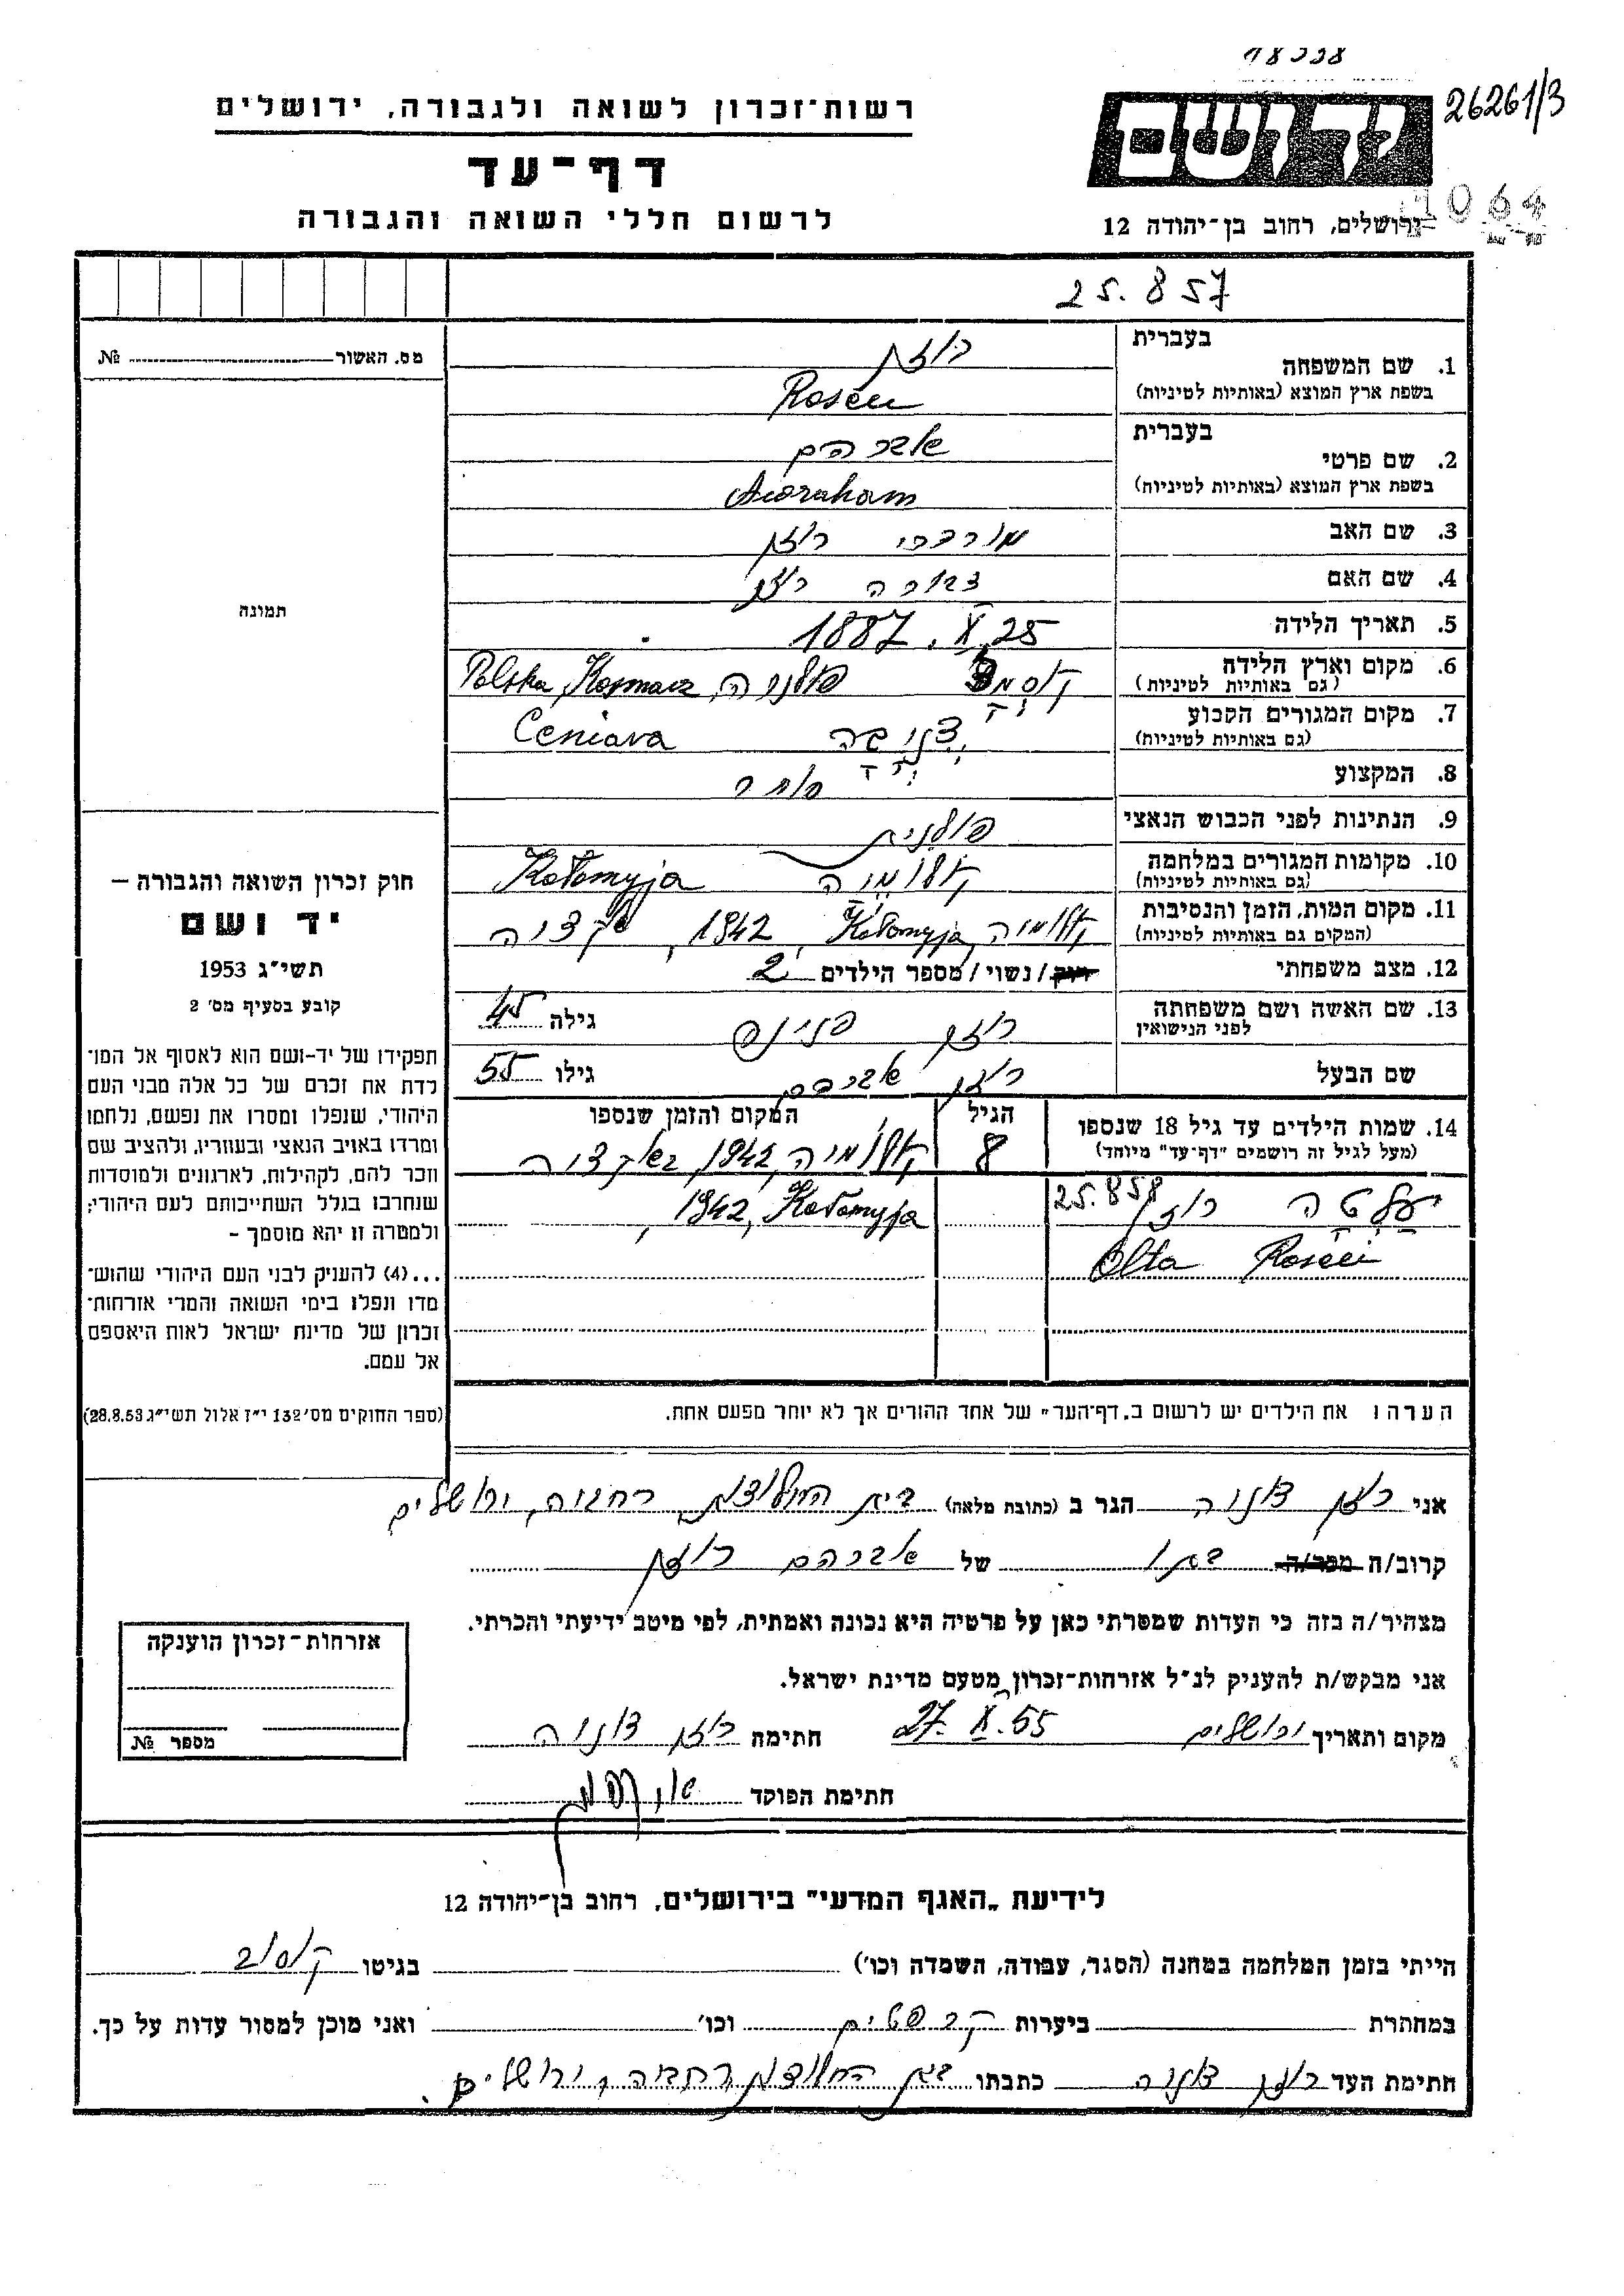 98338
26261/3
רשות־זכרון לשואה ולגבורה, ירושלים
יד ושם
דף־עד
1064
לרשום חללי השואה והגבורה
ירושלים, רחוב בן־יהודה 12
25. 8 57
1. שם המשפחה בעברית רוזן
בשפת ארץ המוצא (באותיות לטיניות) Rosen
2. שם פרטי בעברית אברהם
בשפת ארץ המוצא (באותיות לטיניות) Avoraham
3. שם האב מורדכי רוזן
4. שם האם דבורה רוזן
5. תאריך הלידה 25.X.1887
6. מקום וארץ הלידה (גם באותיות לטיניות) פולניה, Polska, Kosmacz
7. מקום המגורים הקבוע (גם באותיות לטיניות) Ceniava
8. המקצוע סוחר
9. הנתינות לפני הכבוש הנאצי פולנית
10. מקומות המגורים במלחמה (גם באותיות לטיניות) קולומיה Kołomyja
11. מקום המות, הזמן והנסיבות (המקום גם באותיות לטיניות) קולומיה Kołomyja, 1942, אקציה
12. מצב משפחתי רווק/נשוי/מספר הילדים 2
13. שם האשה ושם משפחתה לפני הנישואין רוזן גילה 45
שם הבעל רוזן אברהם גילו 55
14. שמות הילדים עד גיל 18 שנספו הגיל המקום והזמן שנספו
(מעל לגיל זה רושמים "דף־עד" מיוחד) 8 קולומיה, 1942, באקציה
25.858
יעלטה רוזן 1942, Kołomyja
Olta Rosen
הערה: את הילדים יש לרשום ב„דף־העד" של אחד ההורים אך לא יותר מפעם אחת.
מס. האשור №
תמונה
חוק זכרון השואה והגבורה —
יד ושם
תשי״ג 1953
קובע בסעיף מס' 2
תפקידו של יד-ושם הוא לאסוף אל המו־
לדת את זכרם של כל אלה מבני העם
היהודי, שנפלו ומסרו את נפשם, נלחמו
ומרדו באויב הנאצי ובעוזריו, ולהציב שם
וזכר להם, לקהילות, לארגונים ולמוסדות
שנחרבו בגלל השתייכותם לעם היהודי;
ולמטרה זו יהא מוסמך -
...(4) להעניק לבני העם היהודי שהוש־
מדו ונפלו בימי השואה והמרי אזרחות־
זכרון של מדינת ישראל לאות היאספם
אל עמם.
(ספר החוקים מס' 132 י״ז אלול תשי״ג 28.8.53)
אני רוזן הגר ב (כתובת מלאה) בית החלוצות, רחביה, ירושלים
קרוב/ה מכר/ה בתו של אברהם רוזן
מצהיר/ה בזה כי העדות שמסרתי כאן על פרטיה היא נכונה ואמתית, לפי מיטב ידיעתי והכרתי.
אני מבקש/ת להעניק לנ״ל אזרחות־זכרון מטעם מדינת ישראל.
מקום ותאריך ירושלים 27.X.55 חתימה רוזן
חתימת הפוקד
אזרחות־זכרון הוענקה
מספר №
לידיעת „האגף המדעי" בירושלים, רחוב בן־יהודה 12
הייתי בזמן המלחמה במחנה (הסגר, עבודה, השמדה וכו') בגיטו קוסוב
במחתרת ביערות קרפטים וכו' ואני מוכן למסור עדות על כך.
חתימת העד רוזן כתבתו בית החלוצות רחביה, ירושלים.